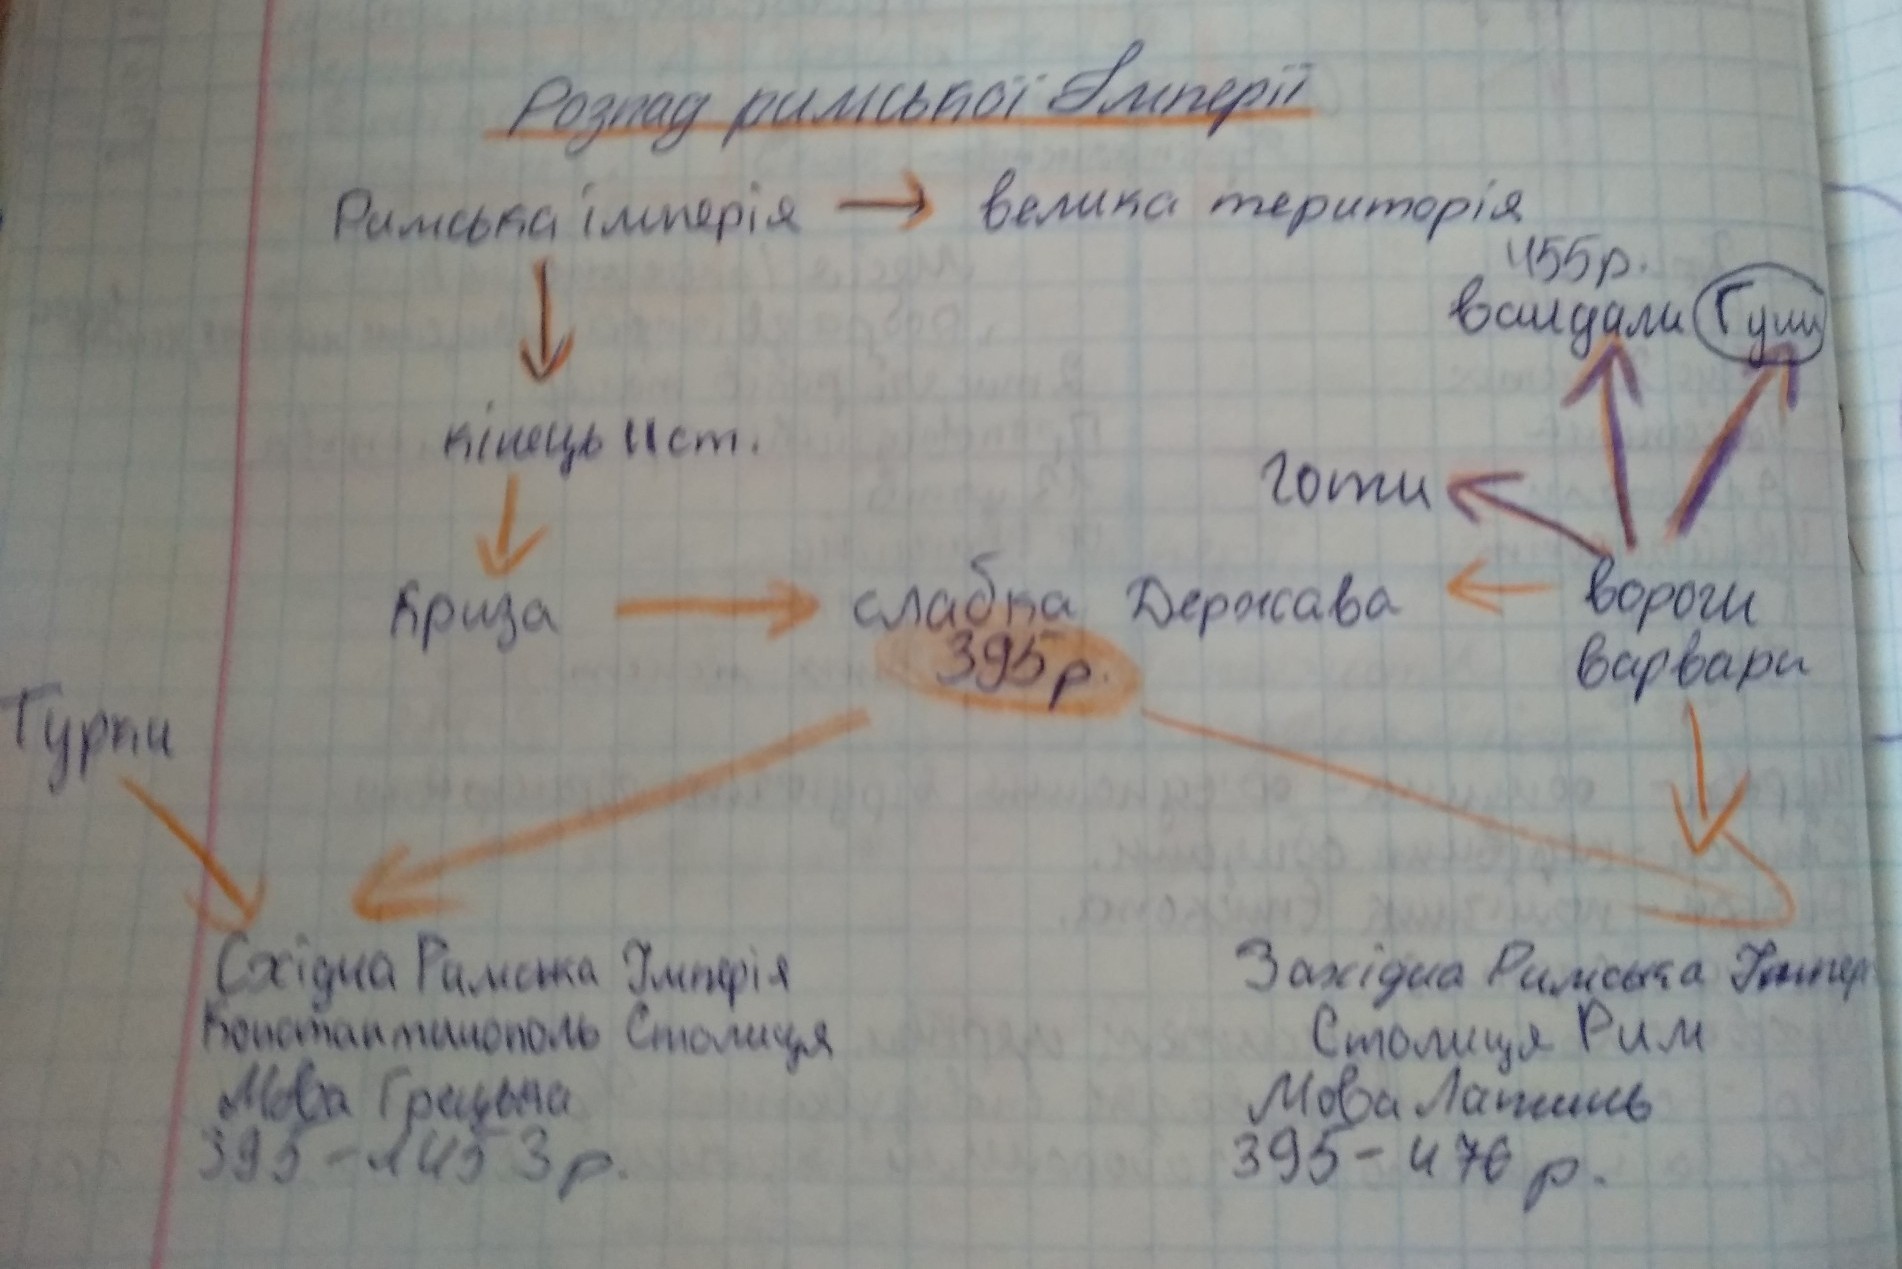 Розпад римської Імперії
Римська імперія → велика територія
455р.
вандали Гуни
кінець 4 ст.
готи
криза → слабка Держава ← вороги
395р.
варвари
Турки
Східна Римська Імперія
Константинополь Столиця
Мова Грецька
395-1453р.
Західна Римська Імпер
Столиця Рим
Мова Латинь
395-476р.